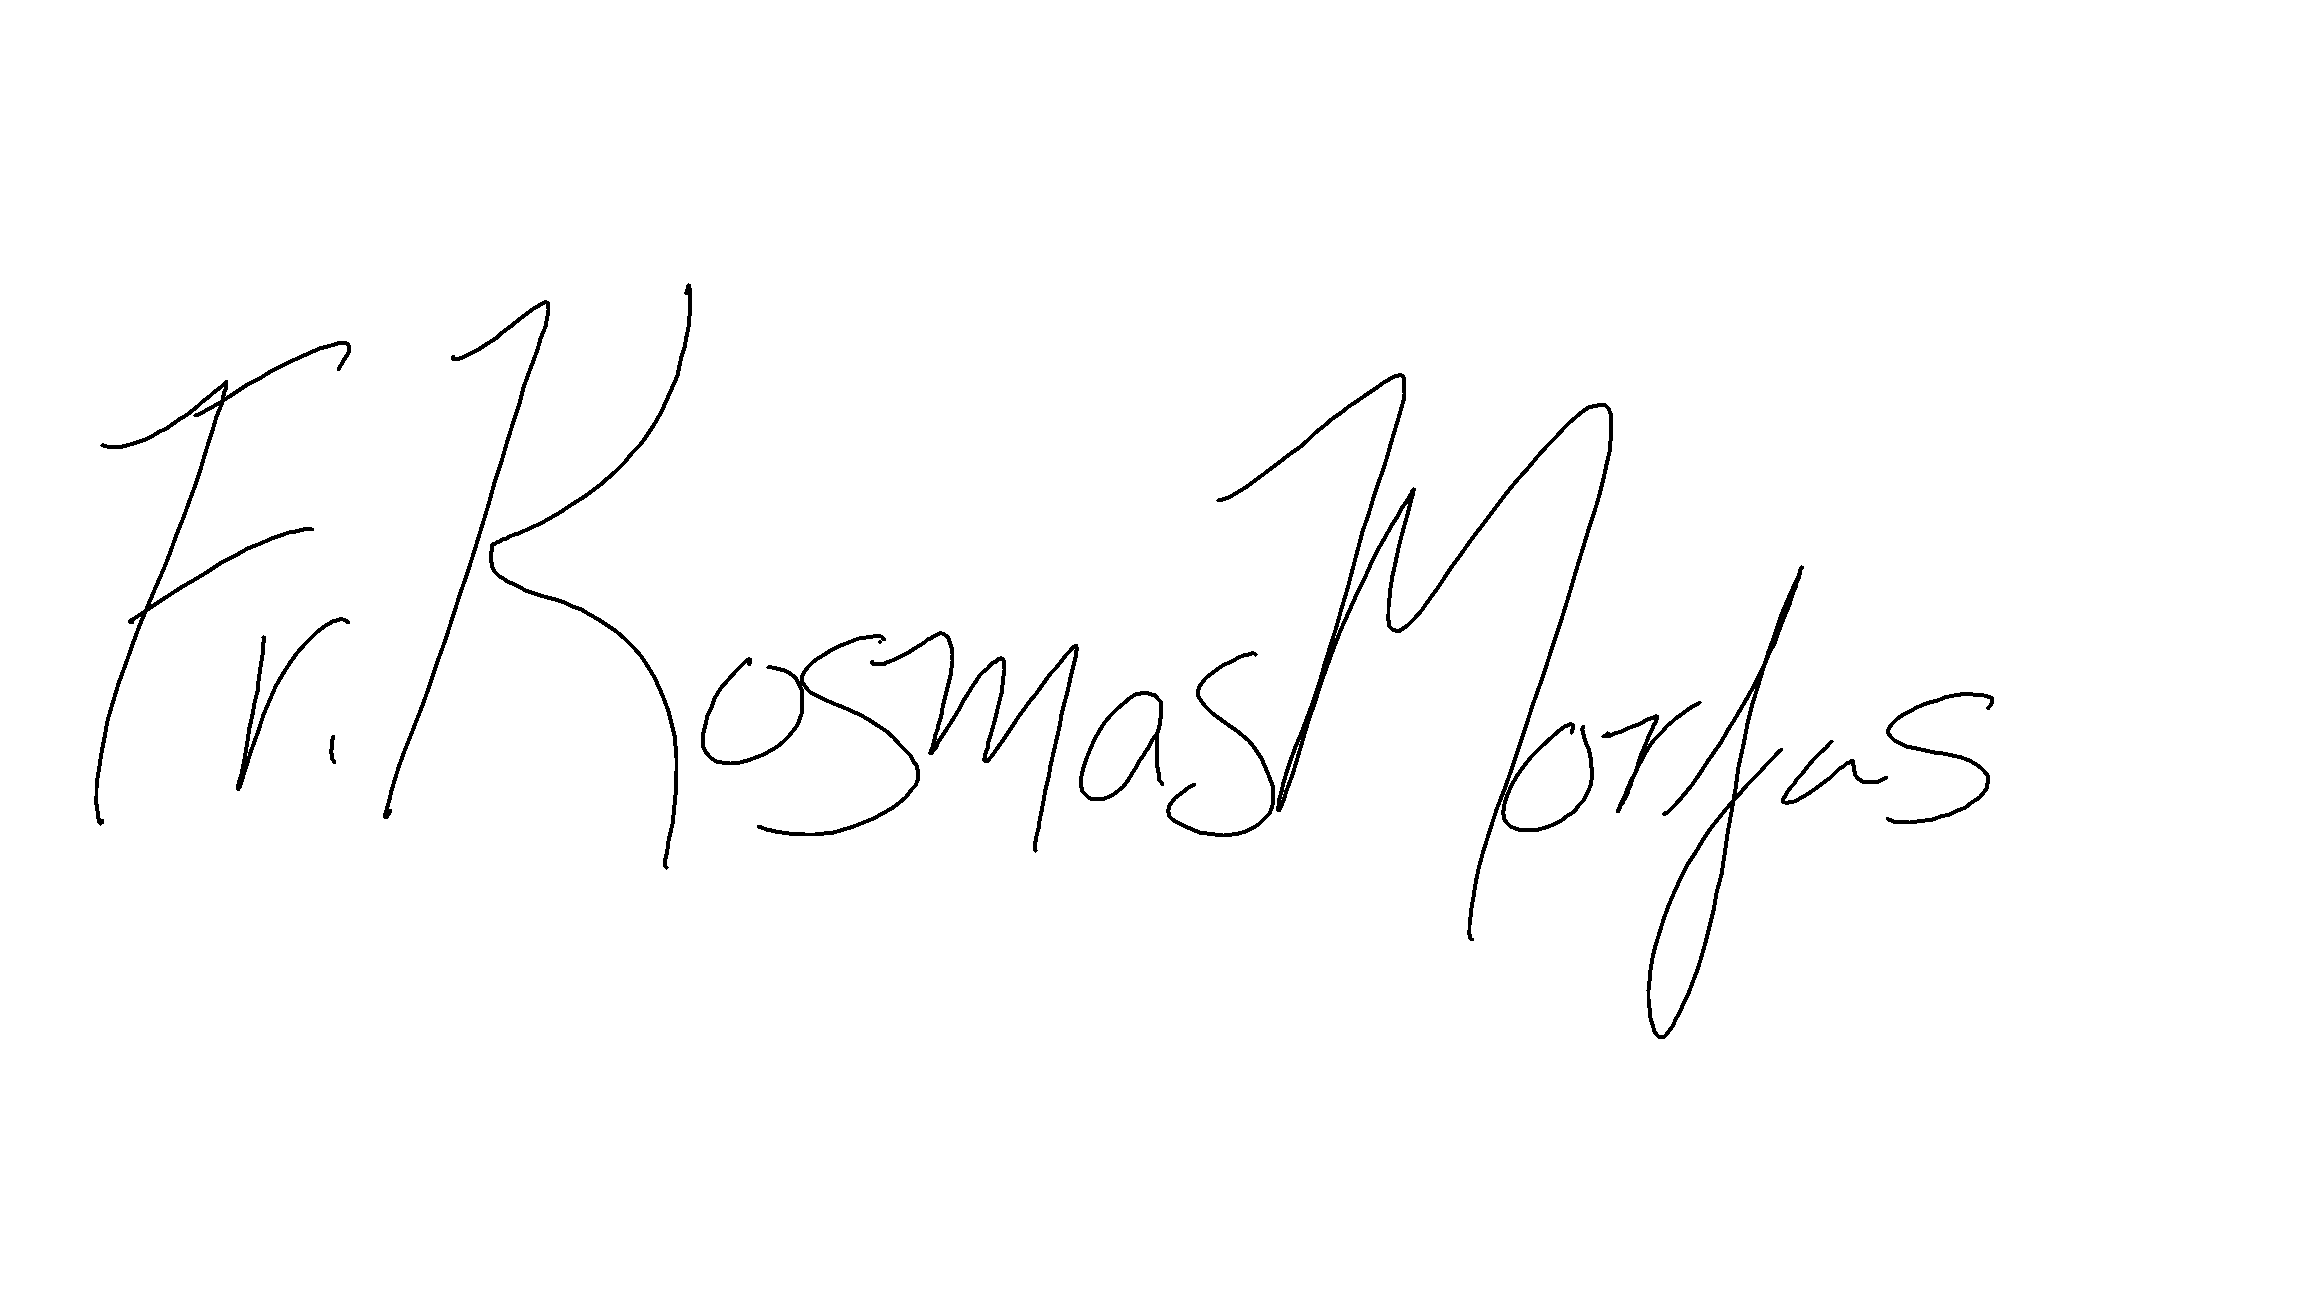 Fr. Kosmas Morfas